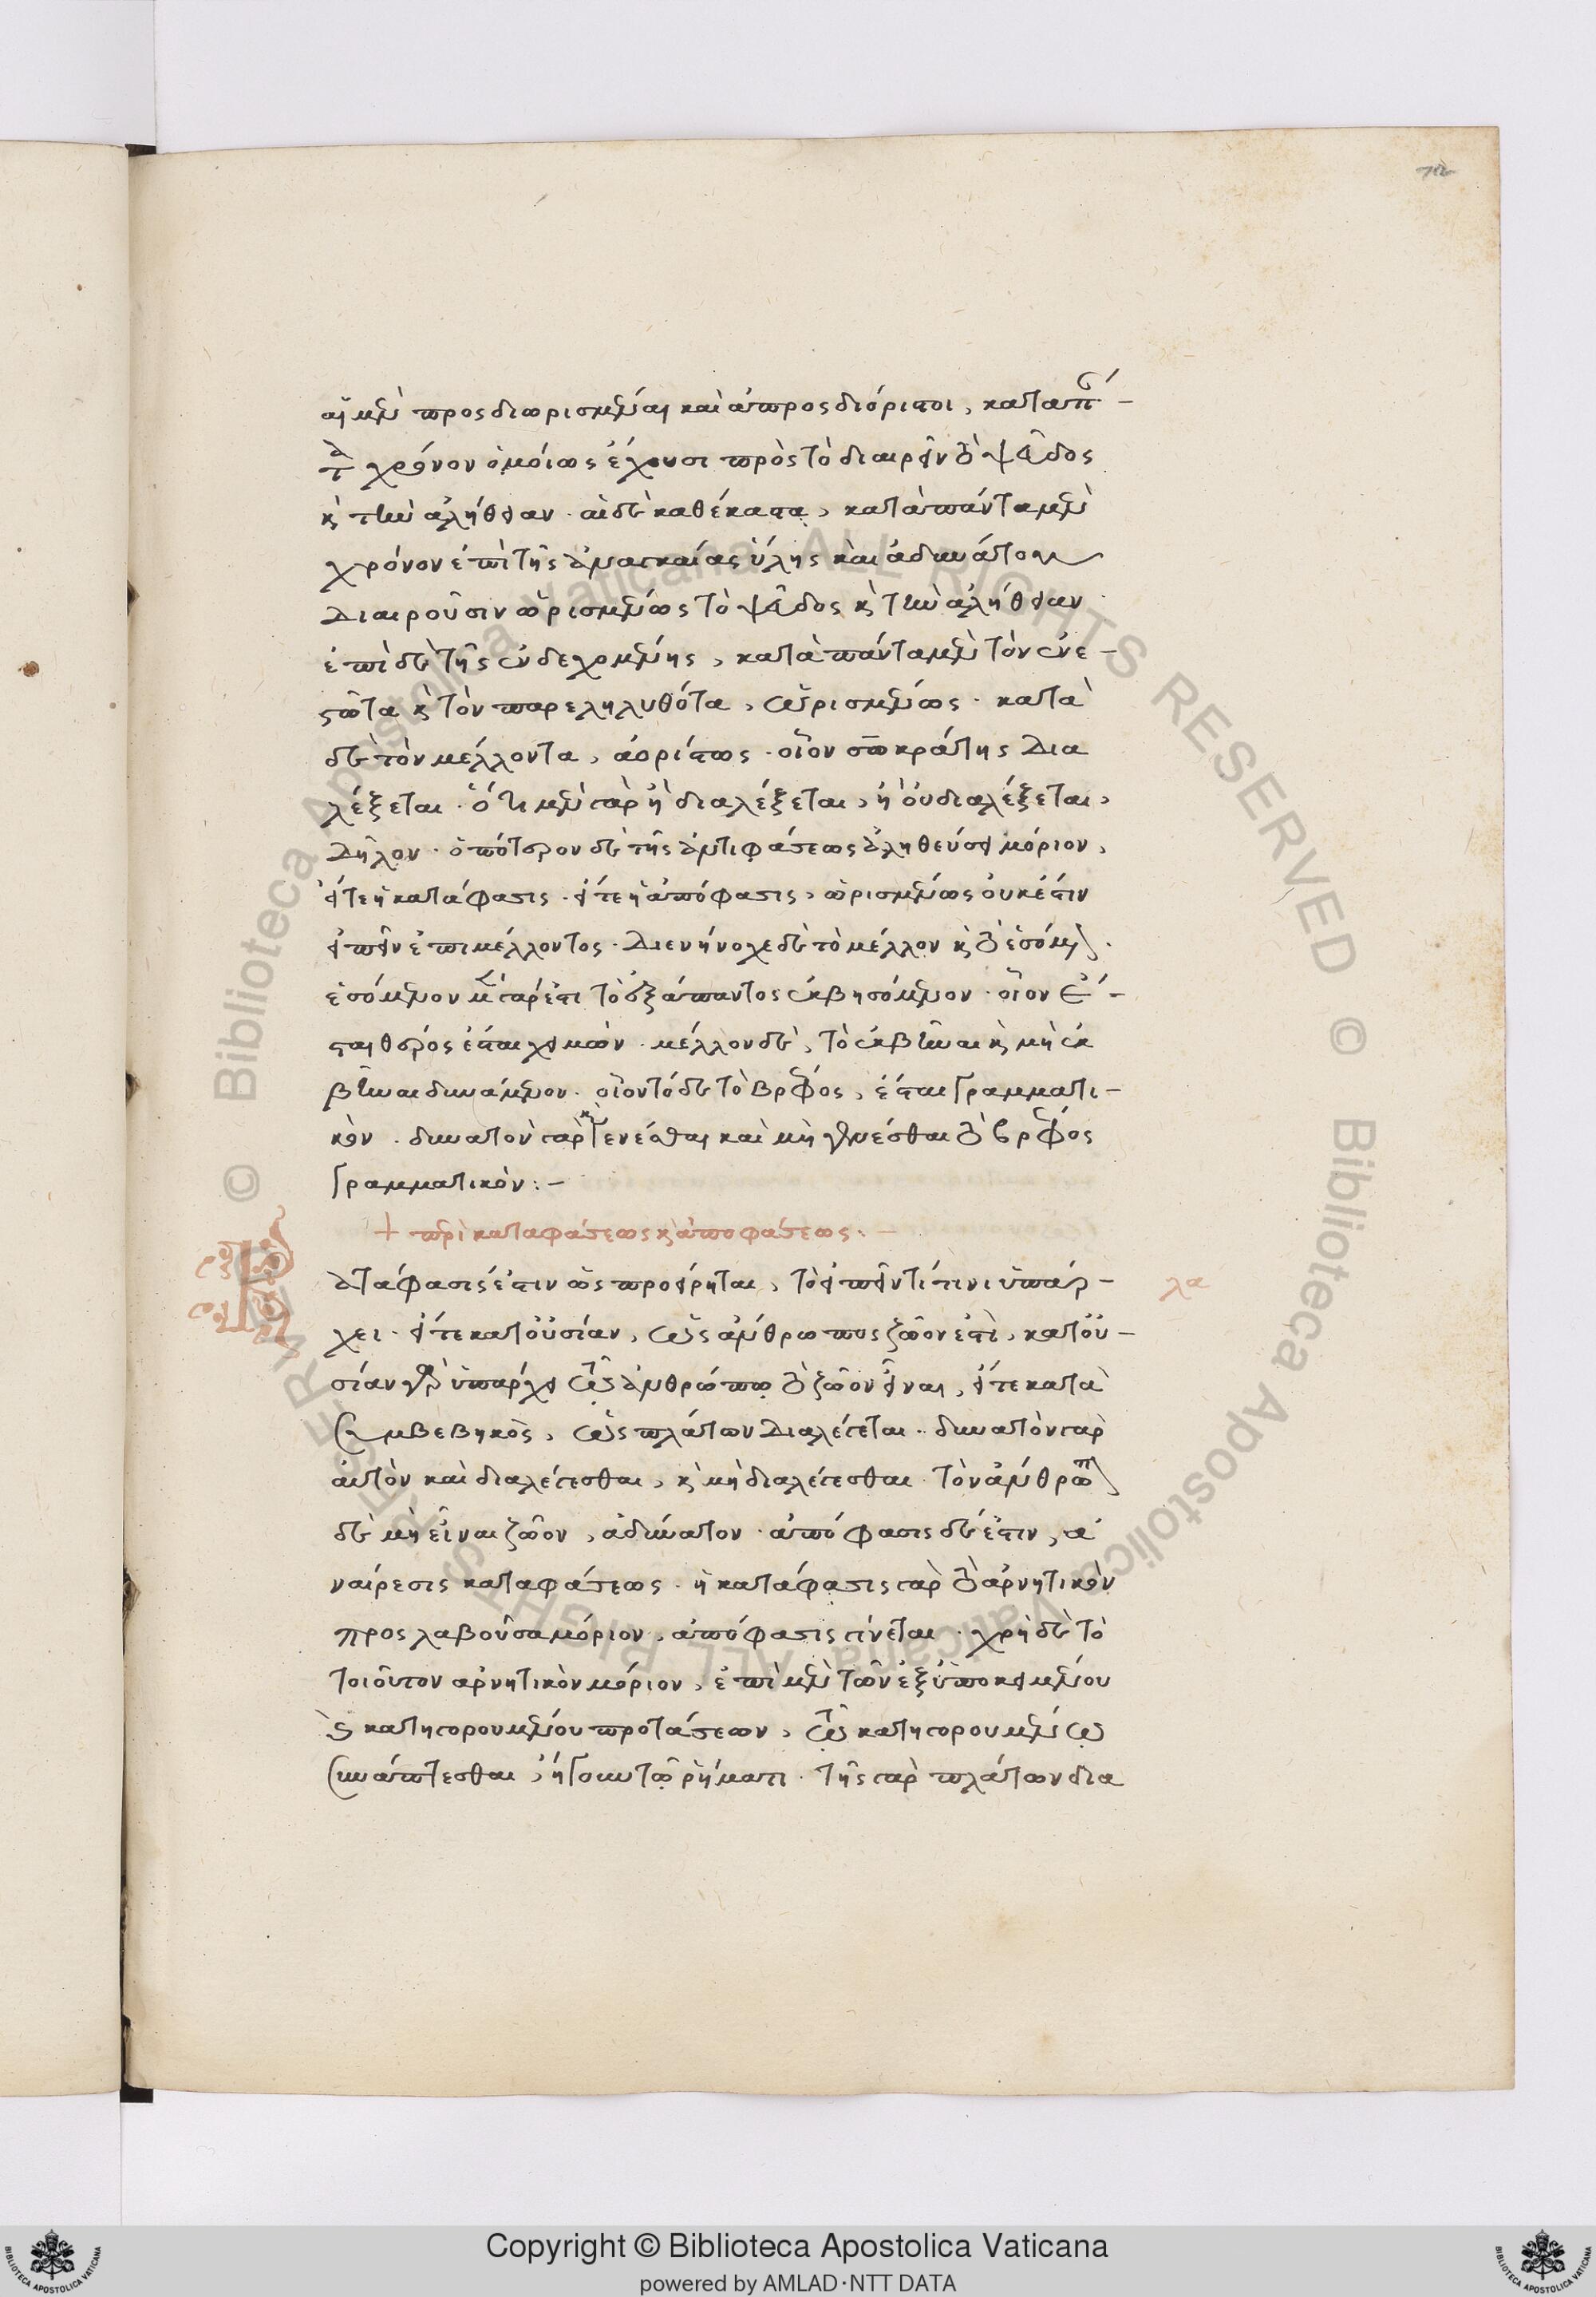 αἱ μὲν προσδιωρισμέναι καὶ ἀπροσδιόριστοι, κατὰ πά-
τα χρόνον ὁμοίως ἔχουσι πρὸς τὸ διαιρεῖν τὸ ψεῦδος
καὶ τὴν ἀλήθειαν. αἱ δὲ καθέκαστα, κατὰ πάντα μὲν
χρόνον ἐπὶ τῆς ἀναγκαίας ὕλης καὶ ἀδυνάτου
διαιροῦσιν ὡρισμένως τὸ ψεῦδος καὶ τὴν ἀλήθειαν.
ἐπὶ δὲ τῆς ἐνδεχομένης, κατὰ πάντα μὲν τὸν ἐνε-
στῶτα καὶ τὸν παρεληλυθότα, ὡρισμένως. κατὰ
δὲ τὸν μέλλοντα, ἀορίστως. οἷον σωκράτης δια
λέξεται. ὅτι μὲν γὰρ ἢ διαλέξεται, ἢ οὐ διαλέξεται,
δῆλον. ὁπότερον δὲ τῆς ἀντιφάσεως ἀληθεύσει μόριον,
εἴτε ἡ κατάφασις. εἴτε ἡ ἀπόφασις, ὡρισμένως οὐκ ἔστιν
εἰπεῖν ἐπὶ μέλλοντος. διενήνοχε δὲ τὸ μέλλον καὶ τὸ ἐσόμενον.
ἐσόμενον μὲν γάρ ἐστι τὸ ἐξάπαντος ἐκβησόμενον. οἷον ἐ-
σται θέρος ἔσται χειμών. μέλλον δὲ, τὸ ἐκβῆναι καὶ μὴ ἐκ
βῆναι δυνάμενον. οἷον τόδε τὸ βρέφος, ἔσται γραμματι-
κόν. δυνατὸν γὰρ καὶ γενέσθαι καὶ μὴ γενέσθαι τὸ βρέφος
γραμματικόν:-
+ περὶ καταφάσεως καὶ ἀποφάσεως:-
ατάφασις ἐστιν ὡς προείρηται, τὸ εἰπεῖν τί τινι ὑπάρ-
λα
χει. εἴτε κατ' οὐσίαν, ὡς ἄνθρωπος ζῶον ἐστὶ, κατ' οὐ-
σίαν γὰρ ὑπάρχει τῷ ἀνθρώπῳ τὸ ζῶον εἶναι, εἴτε κατὰ
συμβεβηκὸς, ὡς πλάτων διαλέγεται. δυνατὸν γὰρ
αὐτὸν καὶ διαλέγεσθαι, καὶ μὴ διαλέγεσθαι. τὸν ἄνθρωπον
δὲ μὴ εἶναι ζῶον, ἀδύνατον. ἀπόφασις δέ ἐστιν, ἀ
ναίρεσις καταφάσεως. ἡ κατάφασις γὰρ τὸ ἀρνητικὸν
προσλαβοῦσα μόριον, ἀπόφασις γίνεται. χρὴ δὲ τὸ
τοιοῦτον ἀρνητικὸν μόριον, ἐπὶ μὲν τῶν ἐξ ὑποκειμένου
καὶ κατηγορουμένου προτάσεων, τῷ κατηγορουμένῳ
συνάπτεσθαι, ἤγουν τῷ ῥήματι. τῆς γὰρ πλάτων δια
Copyright © Biblioteca Apostolica Vaticana
powered by AMLAD·NTT DATA